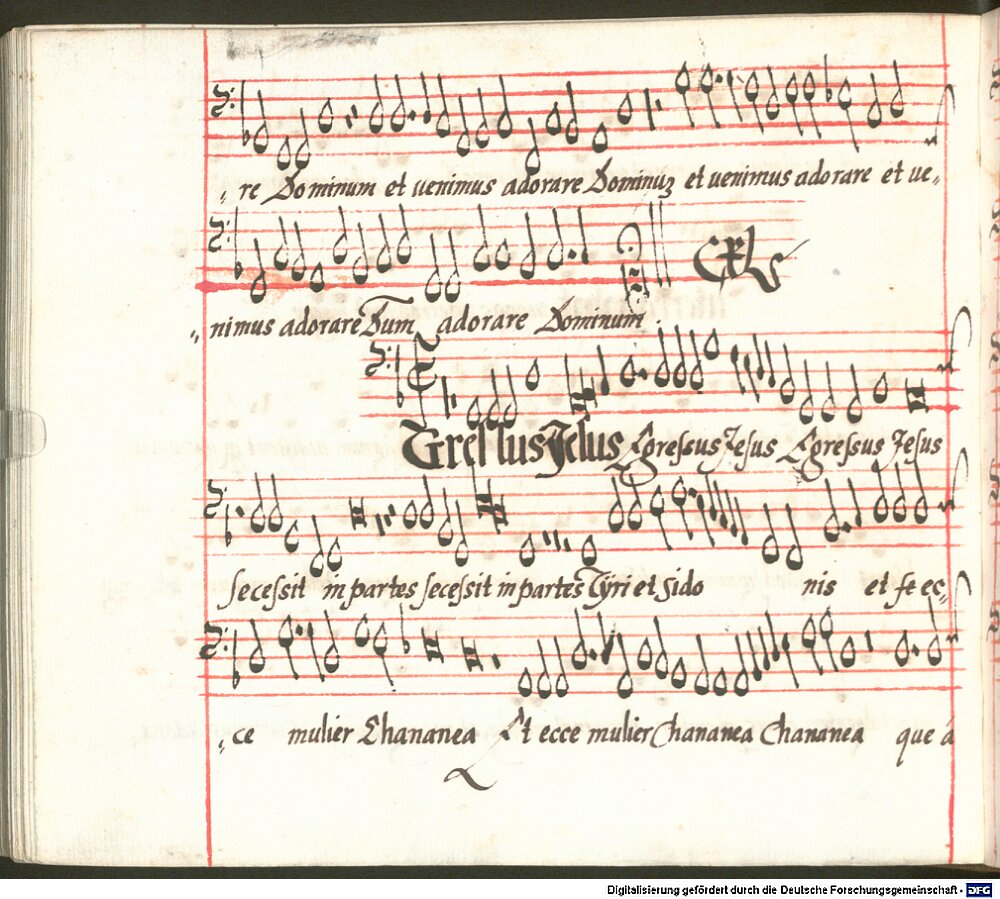 „ re Dominum et uenimus adorare Dominuʒ et uenimus adorare et ue„
„ nimus adorare Dum adorare Dominum
EGreſſusJeſus Egreſsus Jeſus Egreſsus Jeſus
ſeceſsit in partes ſeceſsit in partes Tÿri et Sido nis et
„ ce mulier Chananea Et ecce mulier Chananea Chananea que á
Digitalisierung gefördert durch die Deutsche Forschungsgemeinschaft - DFG